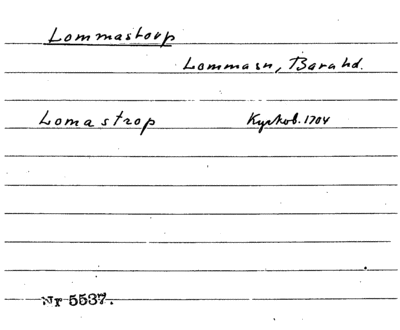 Lommastorp
Lommasn, Bara hd.
Lomastrop Kyrkob. 1704
Nr 5537.